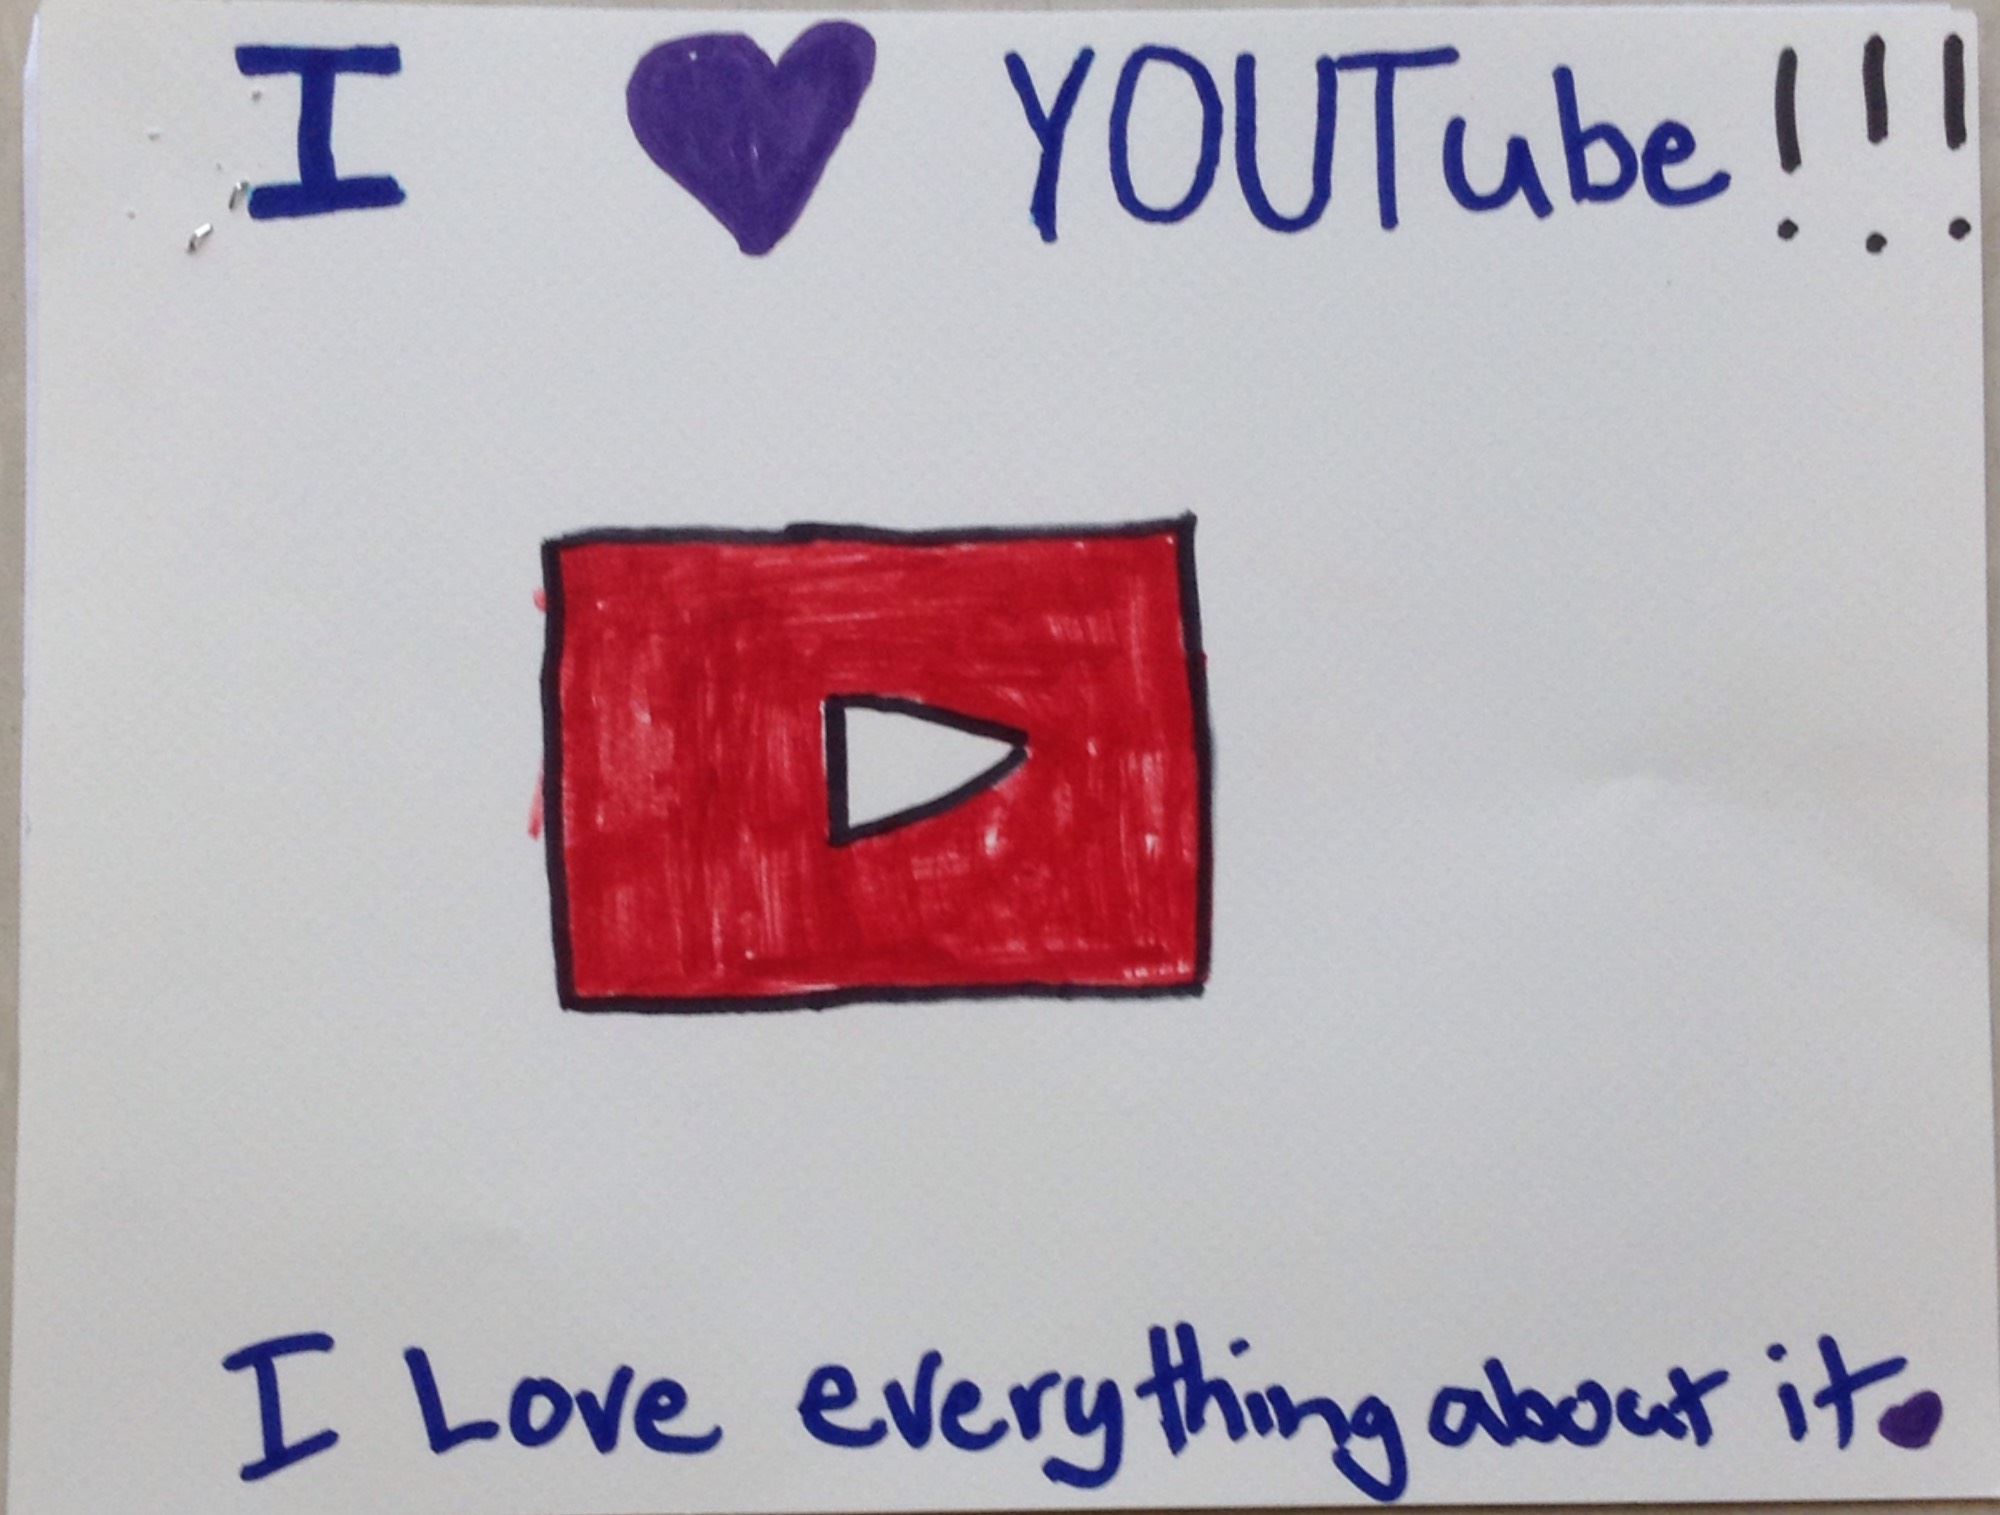 I 💜 YOUTube!!!
I Love everything about it.